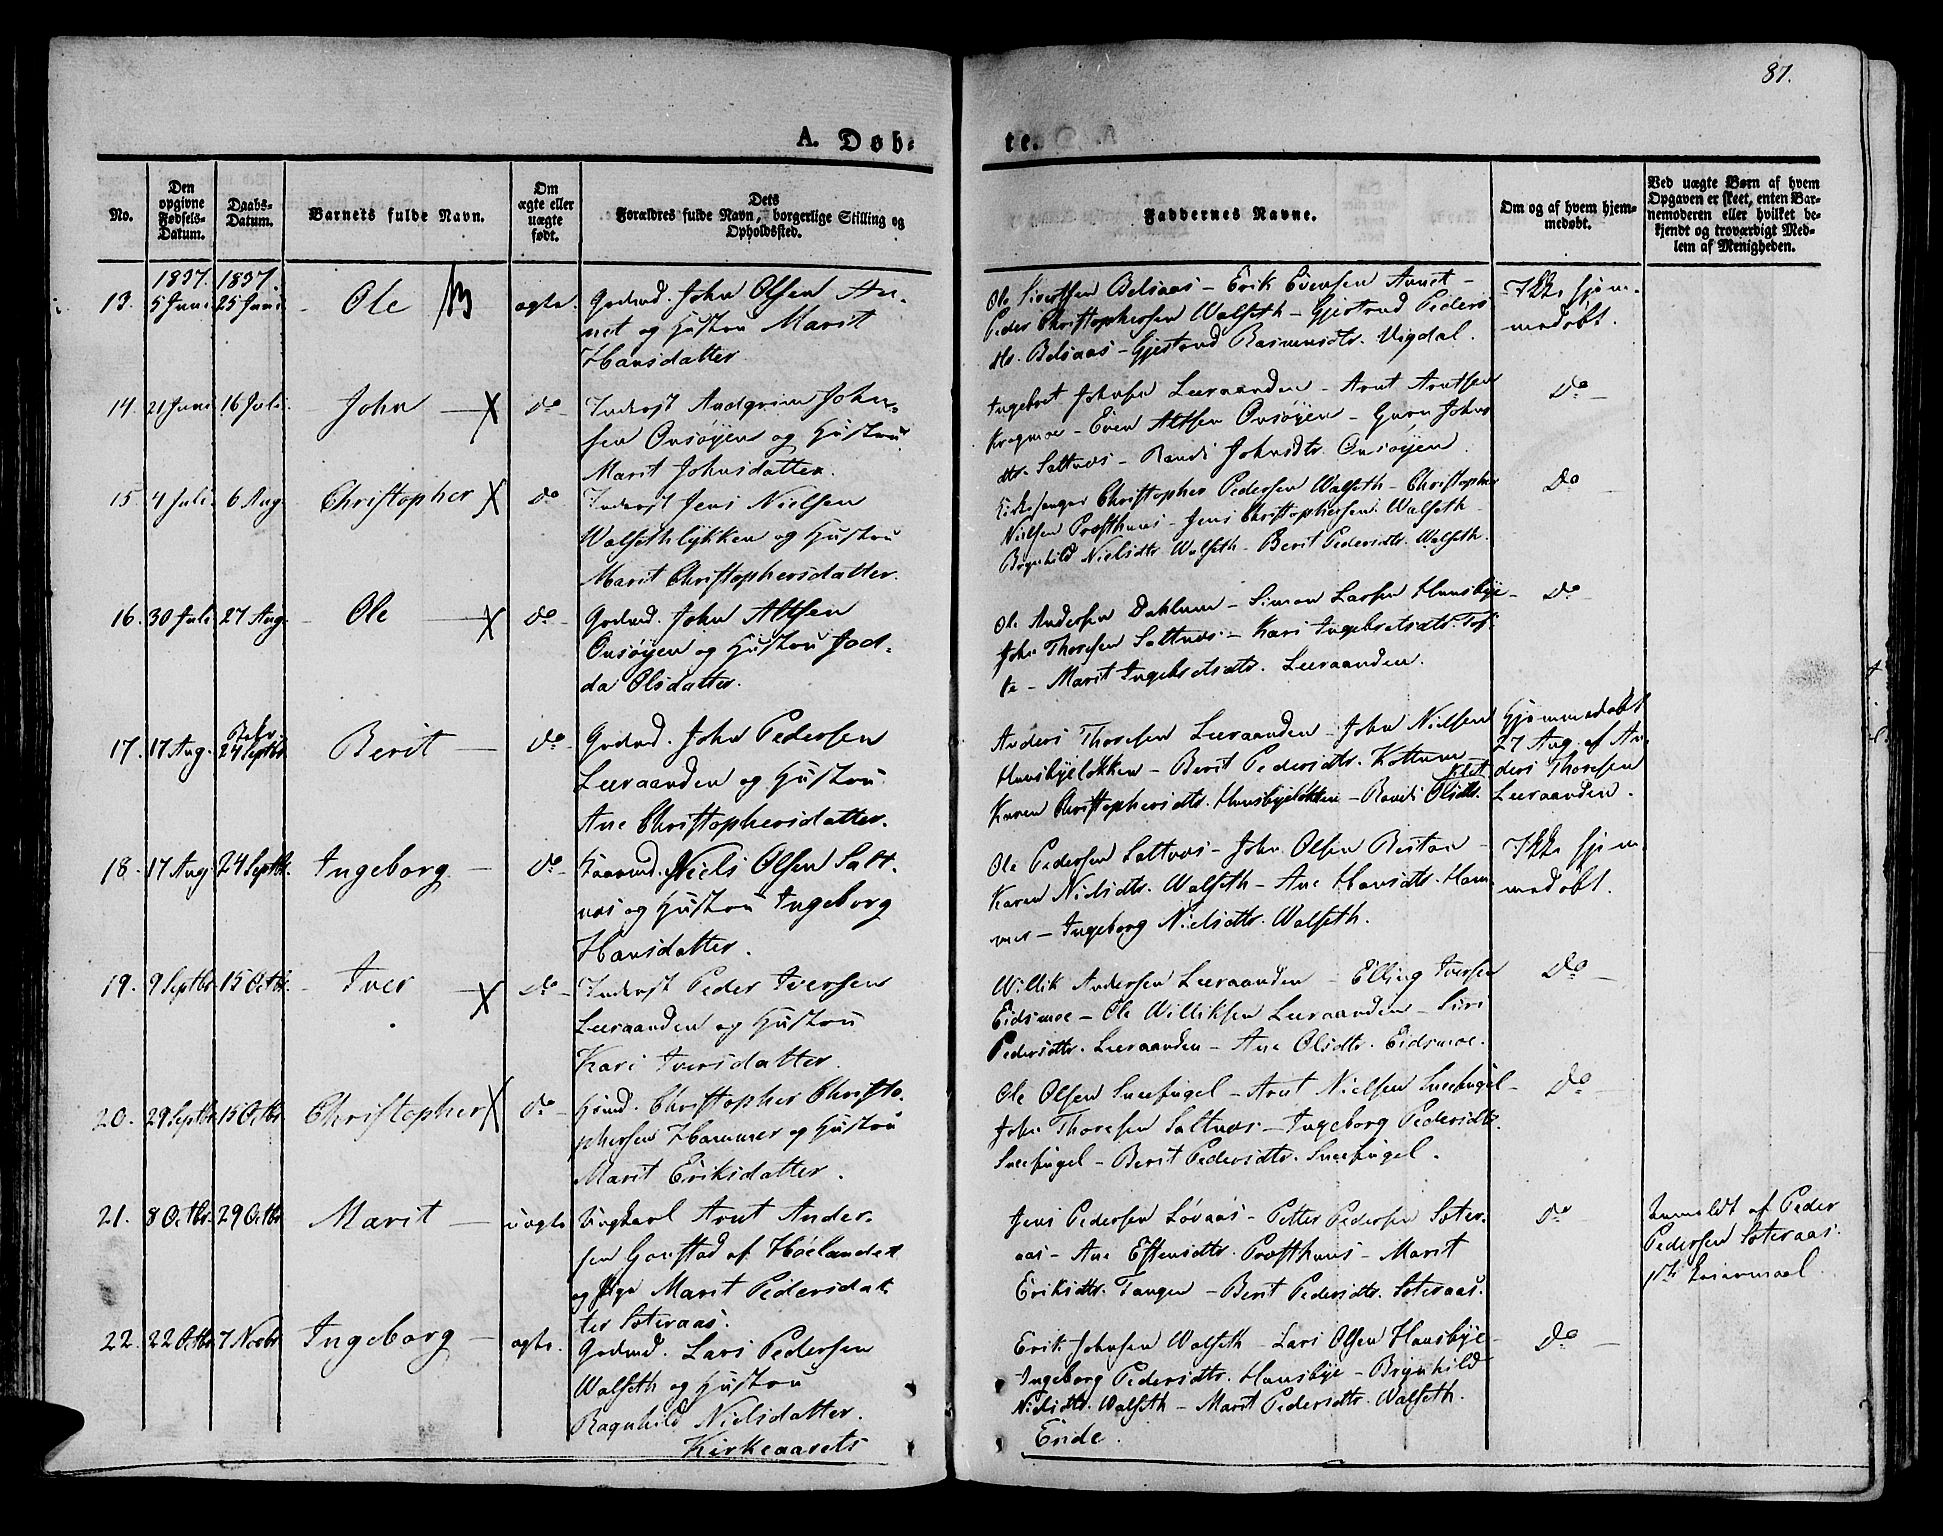 87.
A. Døb-
te.
No.
Den opgivne Fødsels-Datum.
Daabs-Datum.
Barnets fulde Navn.
Om ægte eller uægte født.
Dets Forældres fulde Navn, borgerlige Stilling og Opholdssted.
Faddernes Navne.
Om og af hvem hjem-medøbt.
Ved uægte Børn af hvem Opgaven er skeet, enten Bar-nemoderen eller hvilket be-kjendt og troværdigt Med-lem af Menigheden.
1837. 1837.
13. 5 Juni 25 Juni. Ole ægte. Gdmd. John Olsen Au-
net og Hustru Marit
Hansdatter.
Ole Sivertsen Belsaas - Erik Evensen Aunet -
Peder Christophersen Walseth - Gjertrud Peders
dtr. Belsaas - Gjertrud Rasmusdtr. Vigdal.
Ikke hjem-
medøbt.
14. 21 Juni 16 Juli. John X do Inderst Audgrim John-
sen Onsøyen og Hustru
Marit Johnsdatter.
Ingebret Johnsen Leeraanden - Arnt Arntsen
Krogmoe - Even Altsen Onsøyen - Guru Johns
dtr. Saltnæs - Randi Johnsdtr. Onsøyen.
do
15. 4 Juli. 6 Aug. Christopher X do Inderst Jens Nielsen
Walsethlykken og Hustru
Marit Christophersdatter.
Kirkesanger Christopher Pedersen Walseth - Christopher
Nielsen Prosthuus - Jens Christophersen Walseth -
Brynhild Nielsdtr. Walseth - Berit Pedersdtr. Walseth.
do
16. 30 Juli. 27 Aug. Ole X do Gdmd. John Altsen
Onsøyen og Hustru Jod-
da Olsdatter.
Ole Andersen Dahlum - Simon Larsen Huusbye -
John Thoresen Saltnæs - Kari Ingebretsdtr. Tof-
te - Marit Ingebretsdtr. Leeraanden.
do
17. 17 Aug. 24 Septbr. Berit do Gdmd. John Pedersen
Leeraanden og Hustru
Ane Christophersdatter.
Anders Thoresen Leeraanden - John Nielsen
Huusbyeløkken - Berit Pedersdtr. Kottum
Karen Christophersdtr. Huusbyeløkken - Randi Olsdtr.
Hjemmedøbt
27 Aug. af An-
ders Thoresen
Leeraanden.
18. 17 Aug 24 Septbr. Ingeborg do Niels Olsen Salt-
næs og Hustru Ingeborg
Hansdatter.
Ole Pedersen Saltnæs - John Olsen Bortan -
Karen Nielsdtr. Walseth - Ane Hansdtr. Ham-
mer - Ingeborg Nielsdtr. Walseth.
Ikke hjem-
medøbt.
19. 9 Septbr. 15 Octbr. Iver X do Inderst Peder Iversen
Leeraanden og Hustru
Kari Iversdatter.
Willik Andersen Leeraanden - Elling Iversen
Eidsmoe - Ole Williksen Leeraanden - Siri
Pedersdtr. Leeraanden - Ane Olsdtr. Eidsmoe.
do
20. 29 Septbr. 15 Octbr. Christopher X do Huusmd. Christopher Christo-
phersen Hammer og Hustru
Marit Eriksdatter.
Ole Olsen Sneefugel - Arnt Nielsen Sneefugel -
John Thoresen Saltnæs - Ingeborg Pedersdtr.
Sneefugel - Berit Pedersdtr. Sneefugel.
do
21. 8 Octbr. 29 Octbr. Marit uægte Ungkarl Arnt Ander-
sen Gaustad af Høelandet
og Pige Marit Pedersdat-
ter Soteraas.
Jens Pedersen Løvaas - Petter Pedersen Soter-
aas - Ane Estensdtr. Prosthuus - Marit
Eriksdtr. Tangen - Berit Pedersdtr. Soteraas.
do
Anmeldt af Peder
Pedersen Soteraas.
22. 22 Octbr. 7 Novbr. Ingeborg ægte. Gdmd. Lars Pedersen
Walseth og Hustru
Ragnhild Nielsdatter.
Erik Johnsen Walseth - Lars Olsen Huusbye -
Ingeborg Pedersdtr. Huusbye - Brynhild
Nielsdtr. Walseth - Marit Pedersdtr. Walseth.
do
Kirkeaarets
Ende.